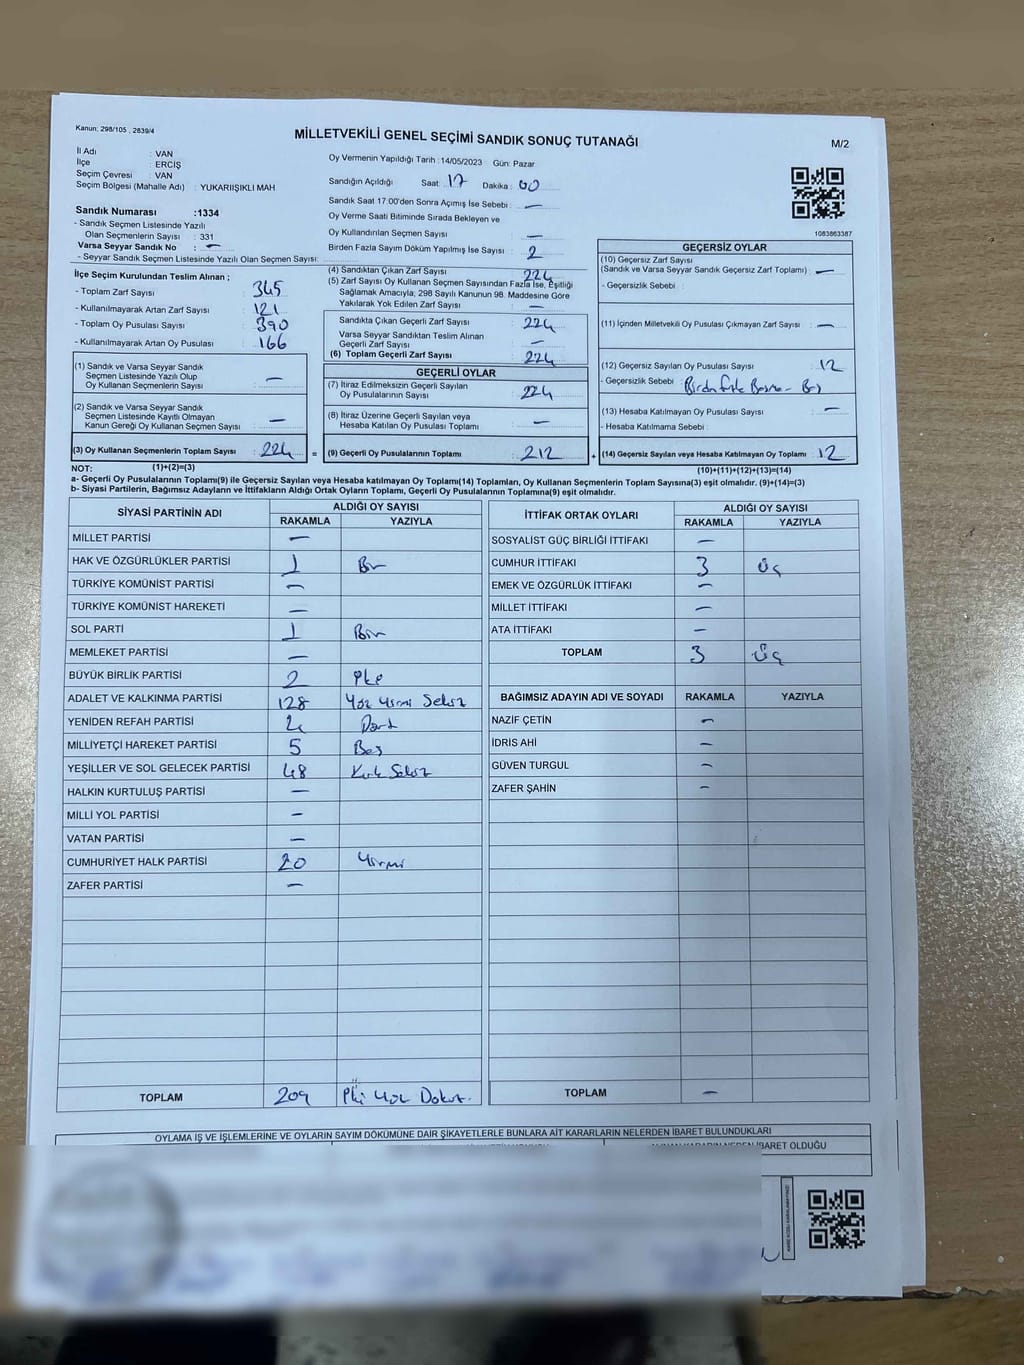 Kanun: 298/105 , 2839/4
MİLLETVEKİLİ GENEL SEÇİMİ SANDIK SONUÇ TUTANAĞI
M/2
İl Adı : VAN
İlçe : ERCİŞ
Seçim Çevresi : VAN
Seçim Bölgesi (Mahalle Adı) : YUKARIIŞIKLI MAH
Sandık Numarası :1334
- Sandık Seçmen Listesinde Yazılı
Olan Seçmenlerin Sayısı : 331
Varsa Seyyar Sandık No : —
- Seyyar Sandık Seçmen Listesinde Yazılı Olan Seçmen Sayısı:
Oy Vermenin Yapıldığı Tarih :14/05/2023 Gün: Pazar
Sandığın Açıldığı Saat : 17 Dakika : 00
Sandık Saat 17.00'den Sonra Açımış İse Sebebi : —
Oy Verme Saati Bitiminde Sırada Bekleyen ve
Oy Kullandırılan Seçmen Sayısı : —
Birden Fazla Sayım Döküm Yapılmış İse Sayısı : 2
1083863387
İlçe Seçim Kurulundan Teslim Alınan ;
- Toplam Zarf Sayısı : 345
- Kullanılmayarak Artan Zarf Sayısı : 121
- Toplam Oy Pusulası Sayısı : 390
- Kullanılmayarak Artan Oy Pusulası : 166
(1) Sandık ve Varsa Seyyar Sandık
Seçmen Listesinde Yazılı Olup
Oy Kullanan Seçmenlerin Sayısı : —
(2) Sandık ve Varsa Seyyar Sandık
Seçmen Listesinde Kayıtlı Olmayan
Kanun Gereği Oy Kullanan Seçmen Sayısı : —
(3) Oy Kullanan Seçmenlerin Toplam Sayısı : 224 =
(4) Sandıktan Çıkan Zarf Sayısı : 224
(5) Zarf Sayısı Oy Kullanan Seçmen Sayısından Fazla İse, Eşitliği
Sağlamak Amacıyla, 298 Sayılı Kanunun 98. Maddesine Göre
Yakılarak Yok Edilen Zarf Sayısı : —
Sandıkta Çıkan Geçerli Zarf Sayısı : 224
Varsa Seyyar Sandıktan Teslim Alınan
Geçerli Zarf Sayısı : —
(6) Toplam Geçerli Zarf Sayısı : 224
GEÇERLİ OYLAR
(7) İtiraz Edilmeksizin Geçerli Sayılan
Oy Pusulalarının Sayısı : 224
(8) İtiraz Üzerine Geçerli Sayılan veya
Hesaba Katılan Oy Pusulası Toplamı : —
(9) Geçerli Oy Pusulalarının Toplamı : 212 +
GEÇERSİZ OYLAR
(10) Geçersiz Zarf Sayısı
(Sandık ve Varsa Seyyar Sandık Geçersiz Zarf Toplamı) : —
- Geçersizlik Sebebi :
(11) İçinden Milletvekili Oy Pusulası Çıkmayan Zarf Sayısı : —
(12) Geçersiz Sayılan Oy Pusulası Sayısı : 12
- Geçersizlik Sebebi : Birden fazla
(13) Hesaba Katılmayan Oy Pusulası Sayısı : —
- Hesaba Katılmama Sebebi :
(14) Geçersiz Sayılan veya Hesaba Katılmayan Oy Toplamı : 12
NOT: (1)+(2)=(3) (10)+(11)+(12)+(13)=(14)
a- Geçerli Oy Pusulalarının Toplamı(9) ile Geçersiz Sayılan veya Hesaba Katılmayan Oy Toplamı(14) Toplamları, Oy Kullanan Seçmenlerin Toplam Sayısına(3) eşit olmalıdır. (9)+(14)=(3)
b- Siyasi Partilerin, Bağımsız Adayların ve İttifakların Aldığı Ortak Oyların Toplamı, Geçerli Oy Pusulalarının Toplamına(9) eşit olmalıdır.
SİYASİ PARTİNİN ADI ALDIĞI OY SAYISI
RAKAMLA YAZIYLA
MİLLET PARTİSİ —
HAK VE ÖZGÜRLÜKLER PARTİSİ 1 Bir
TÜRKİYE KOMÜNİST PARTİSİ —
TÜRKİYE KOMÜNİST HAREKETİ —
SOL PARTİ 1 Bir
MEMLEKET PARTİSİ —
BÜYÜK BİRLİK PARTİSİ 2 İki
ADALET VE KALKINMA PARTİSİ 128 Yüz Yirmi Sekiz
YENİDEN REFAH PARTİSİ 4 Dört
MİLLİYETÇİ HAREKET PARTİSİ 5 Beş
YEŞİLLER VE SOL GELECEK PARTİSİ 48 Kırk Sekiz
HALKIN KURTULUŞ PARTİSİ —
MİLLİ YOL PARTİSİ —
VATAN PARTİSİ —
CUMHURİYET HALK PARTİSİ 20 Yirmi
ZAFER PARTİSİ —
TOPLAM 209 İki Yüz Dokuz
İTTİFAK ORTAK OYLARI ALDIĞI OY SAYISI
RAKAMLA YAZIYLA
SOSYALİST GÜÇ BİRLİĞİ İTTİFAKI —
CUMHUR İTTİFAKI 3 Üç
EMEK VE ÖZGÜRLÜK İTTİFAKI —
MİLLET İTTİFAKI —
ATA İTTİFAKI —
TOPLAM 3 Üç
BAĞIMSIZ ADAYIN ADI VE SOYADI RAKAMLA YAZIYLA
NAZİF ÇETİN —
İDRİS AHİ —
GÜVEN TURGUL —
ZAFER ŞAHİN —
TOPLAM —
OYLAMA İŞ VE İŞLEMLERİNE VE OYLARIN SAYIM DÖKÜMÜNE DAİR ŞİKAYETLERLE BUNLARA AİT KARARLARIN NELERDEN İBARET BULUNDUKLARI
İBARET OLDUĞU